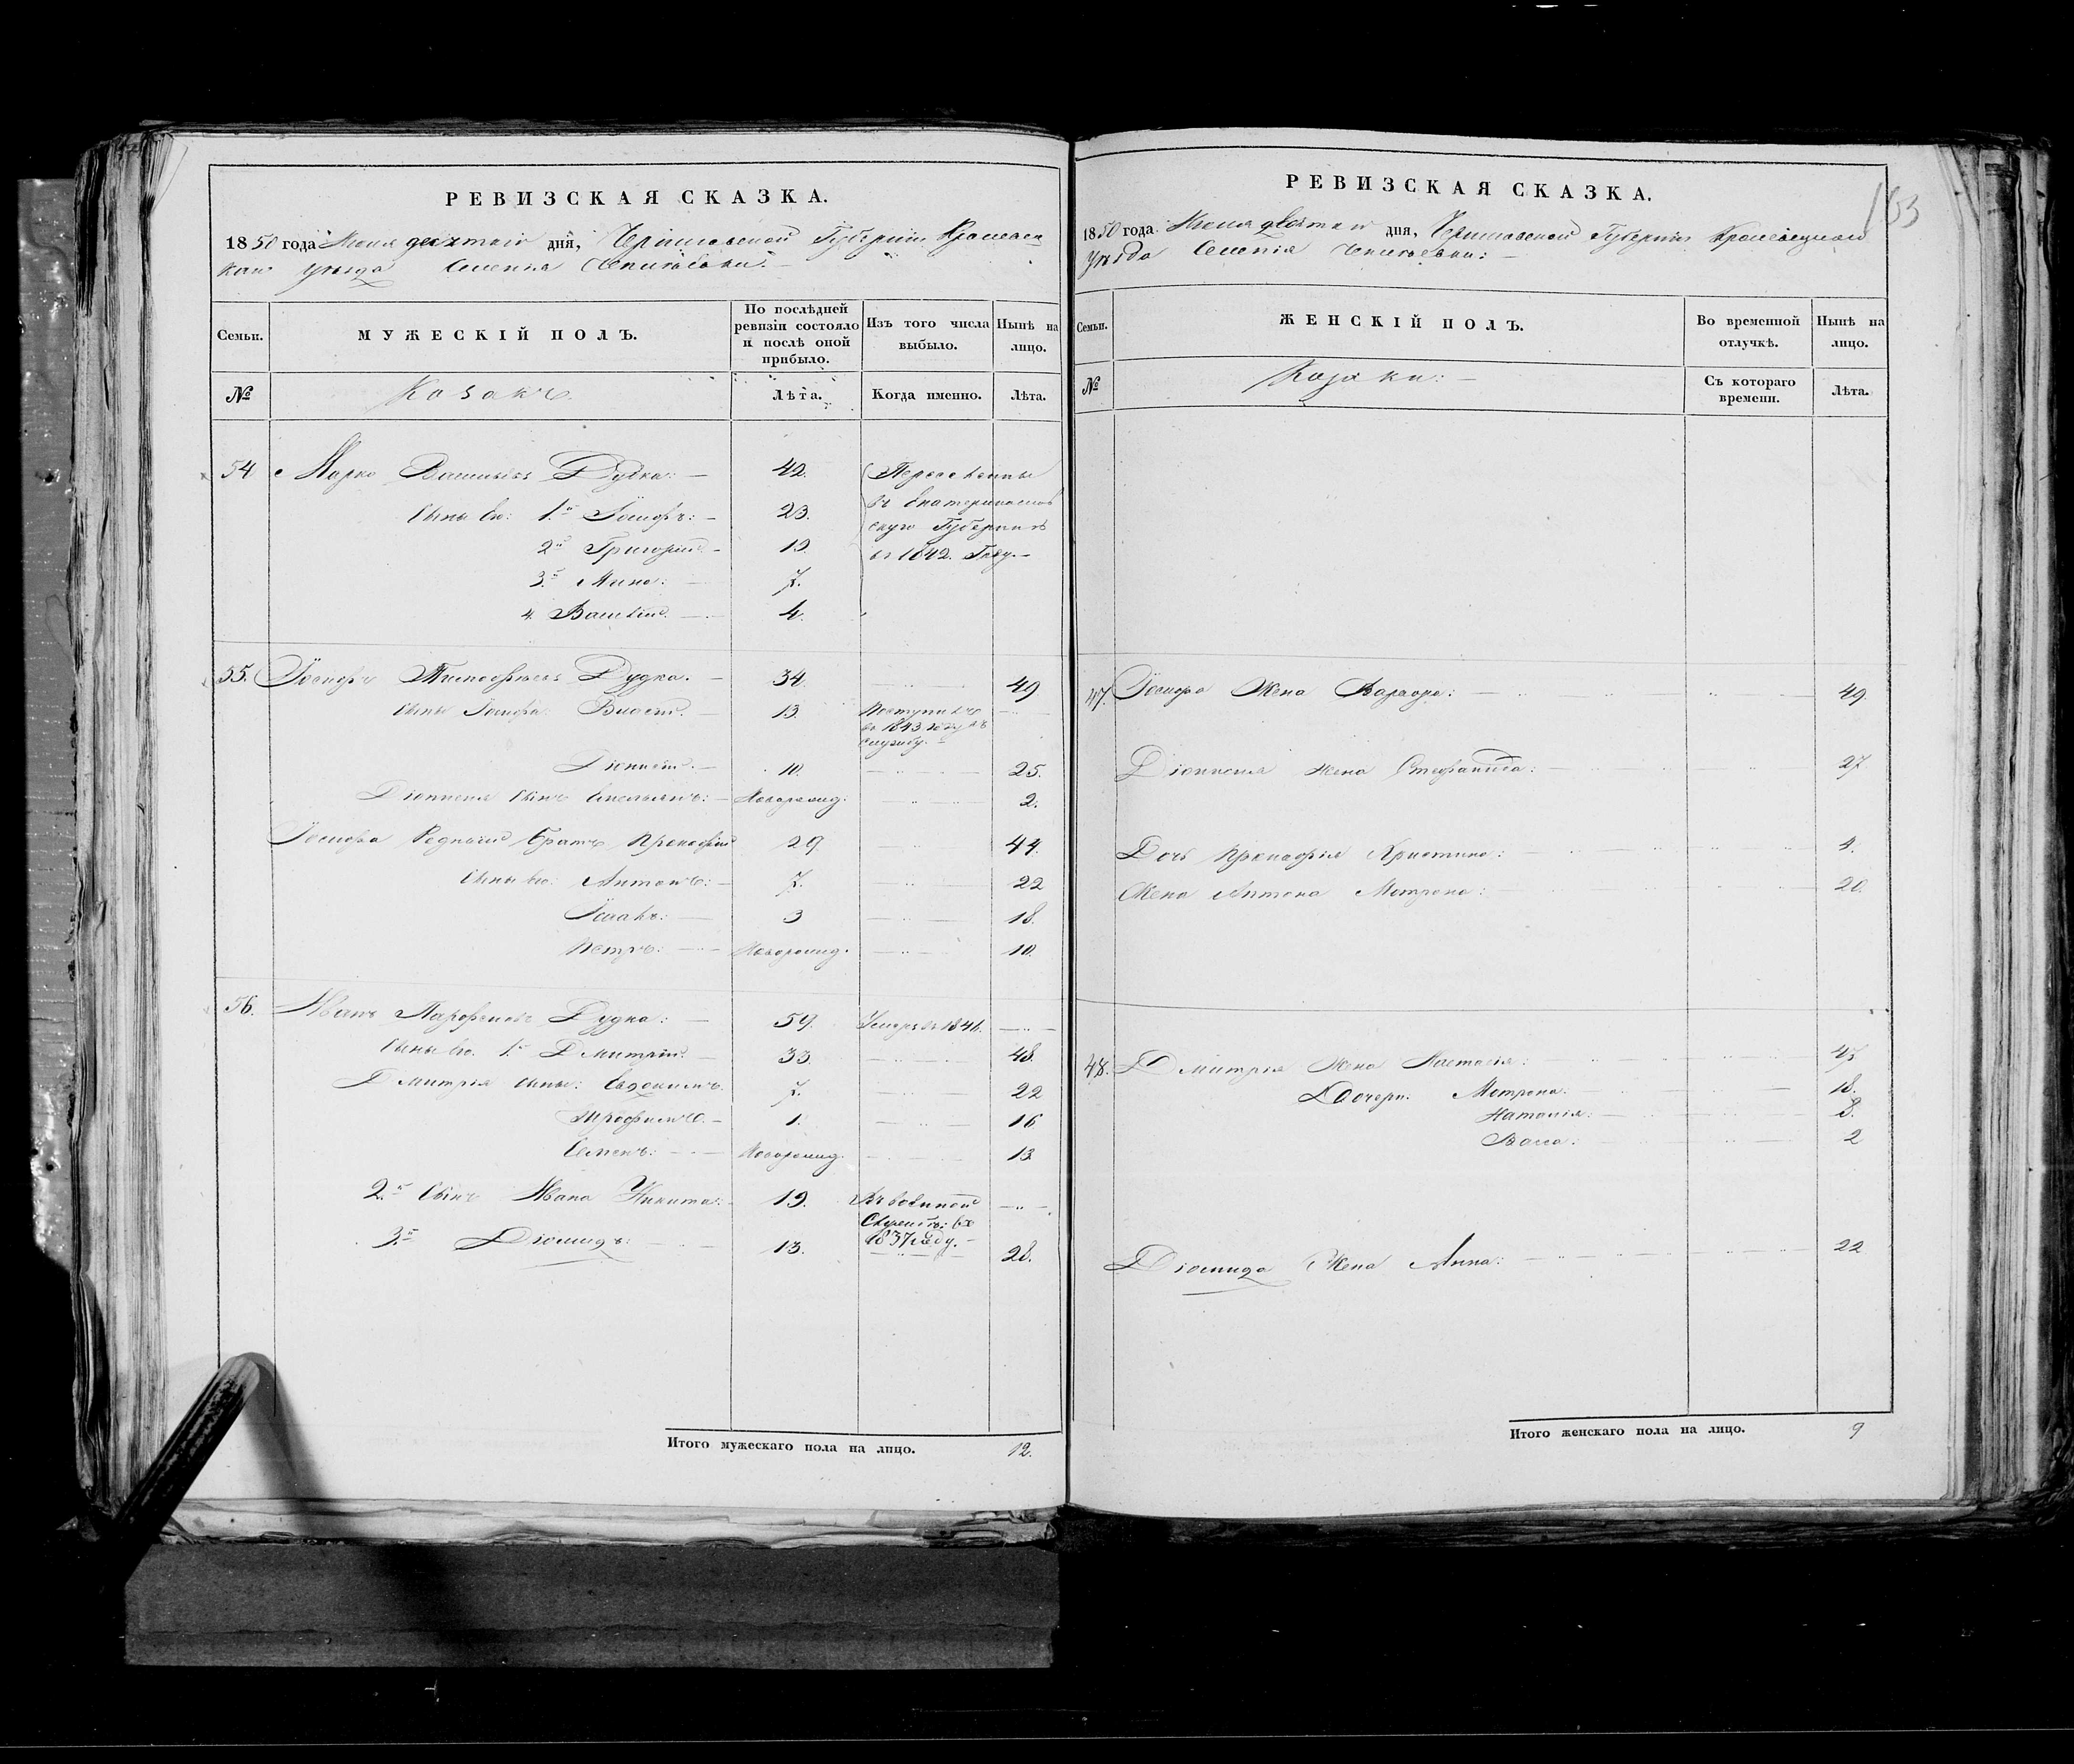 РЕВИЗСКАЯ СКАЗКА.
1850 года Июня девятаго дня, Черниговской Губернии Кролевец
каго уезда Селения
Семьи.
МУЖЕСКІЙ ПОЛЪ.
По послѣдней ревизіи состояло и послѣ оной прибыло.
Изъ того числа выбыло.
Нынѣ на лицо.
№
Козакъ
Лѣта.
Когда именно.
Лѣта.
54 Марко Васильевъ Дудка: 42. Переселены
Сыны его: 1й Іосифъ: 23. въ Екатеринослав
2й Григорій 19. скую Губернию
3й Мина: 7. въ 1842. Году.
4. Василій. 4.
55. Іосифъ Тимофѣевъ Дудка. 34. 49
Сыны Іосифа: Власій. 13. Поступилъ
въ 1843 году въ
службу.
Діонисій. 10. 25.
Діонисия Сынъ Емельянъ: Новорожд. 2.
Іосифа Родный братъ Прокофій 29 44.
Сыны его: Антонъ: 7. 22
Ісаакъ: 3 18.
Петръ: Новорожд. 10.
56. Иванъ Парфеновъ Дудка: 59. Умеръ въ 1841.
Сыны его. 1й Дмитрій. 33. 48.
Дмитрія сыны: Евдокимъ. 7. 22
Трофимъ. 1. 16
Семенъ: Новорожд. 13.
2й Сынъ Ивана Никита: 19. Въ военной
Службѣ: въ
1837 году.
3й Діомидъ: 13. 28.
Итого мужескаго пола на лицо. 12.
163
РЕВИЗСКАЯ СКАЗКА.
1850 года Июня девятаго дня, Черниговской Губерніи Кролевецкаго
Уезда Селенія
Семьи.
ЖЕНСКІЙ ПОЛЪ.
Во временной отлучкѣ.
Нынѣ на лицо.
№
Козаки:
Съ котораго времени.
Лѣта.
47. Іосифа Жена Варвара: 49.
Діонисия жена Стефанида: 27
Дочь Прокофія Христина: 4.
Жена Антона Мотрона: 20.
48. Дмитрія Жена Настасія: 45
Дочери. Мотрона. 18.
Наталія: 8.
Васса: 2
Діомида Жена Анна: 22
Итого женскаго пола на лицо. 9